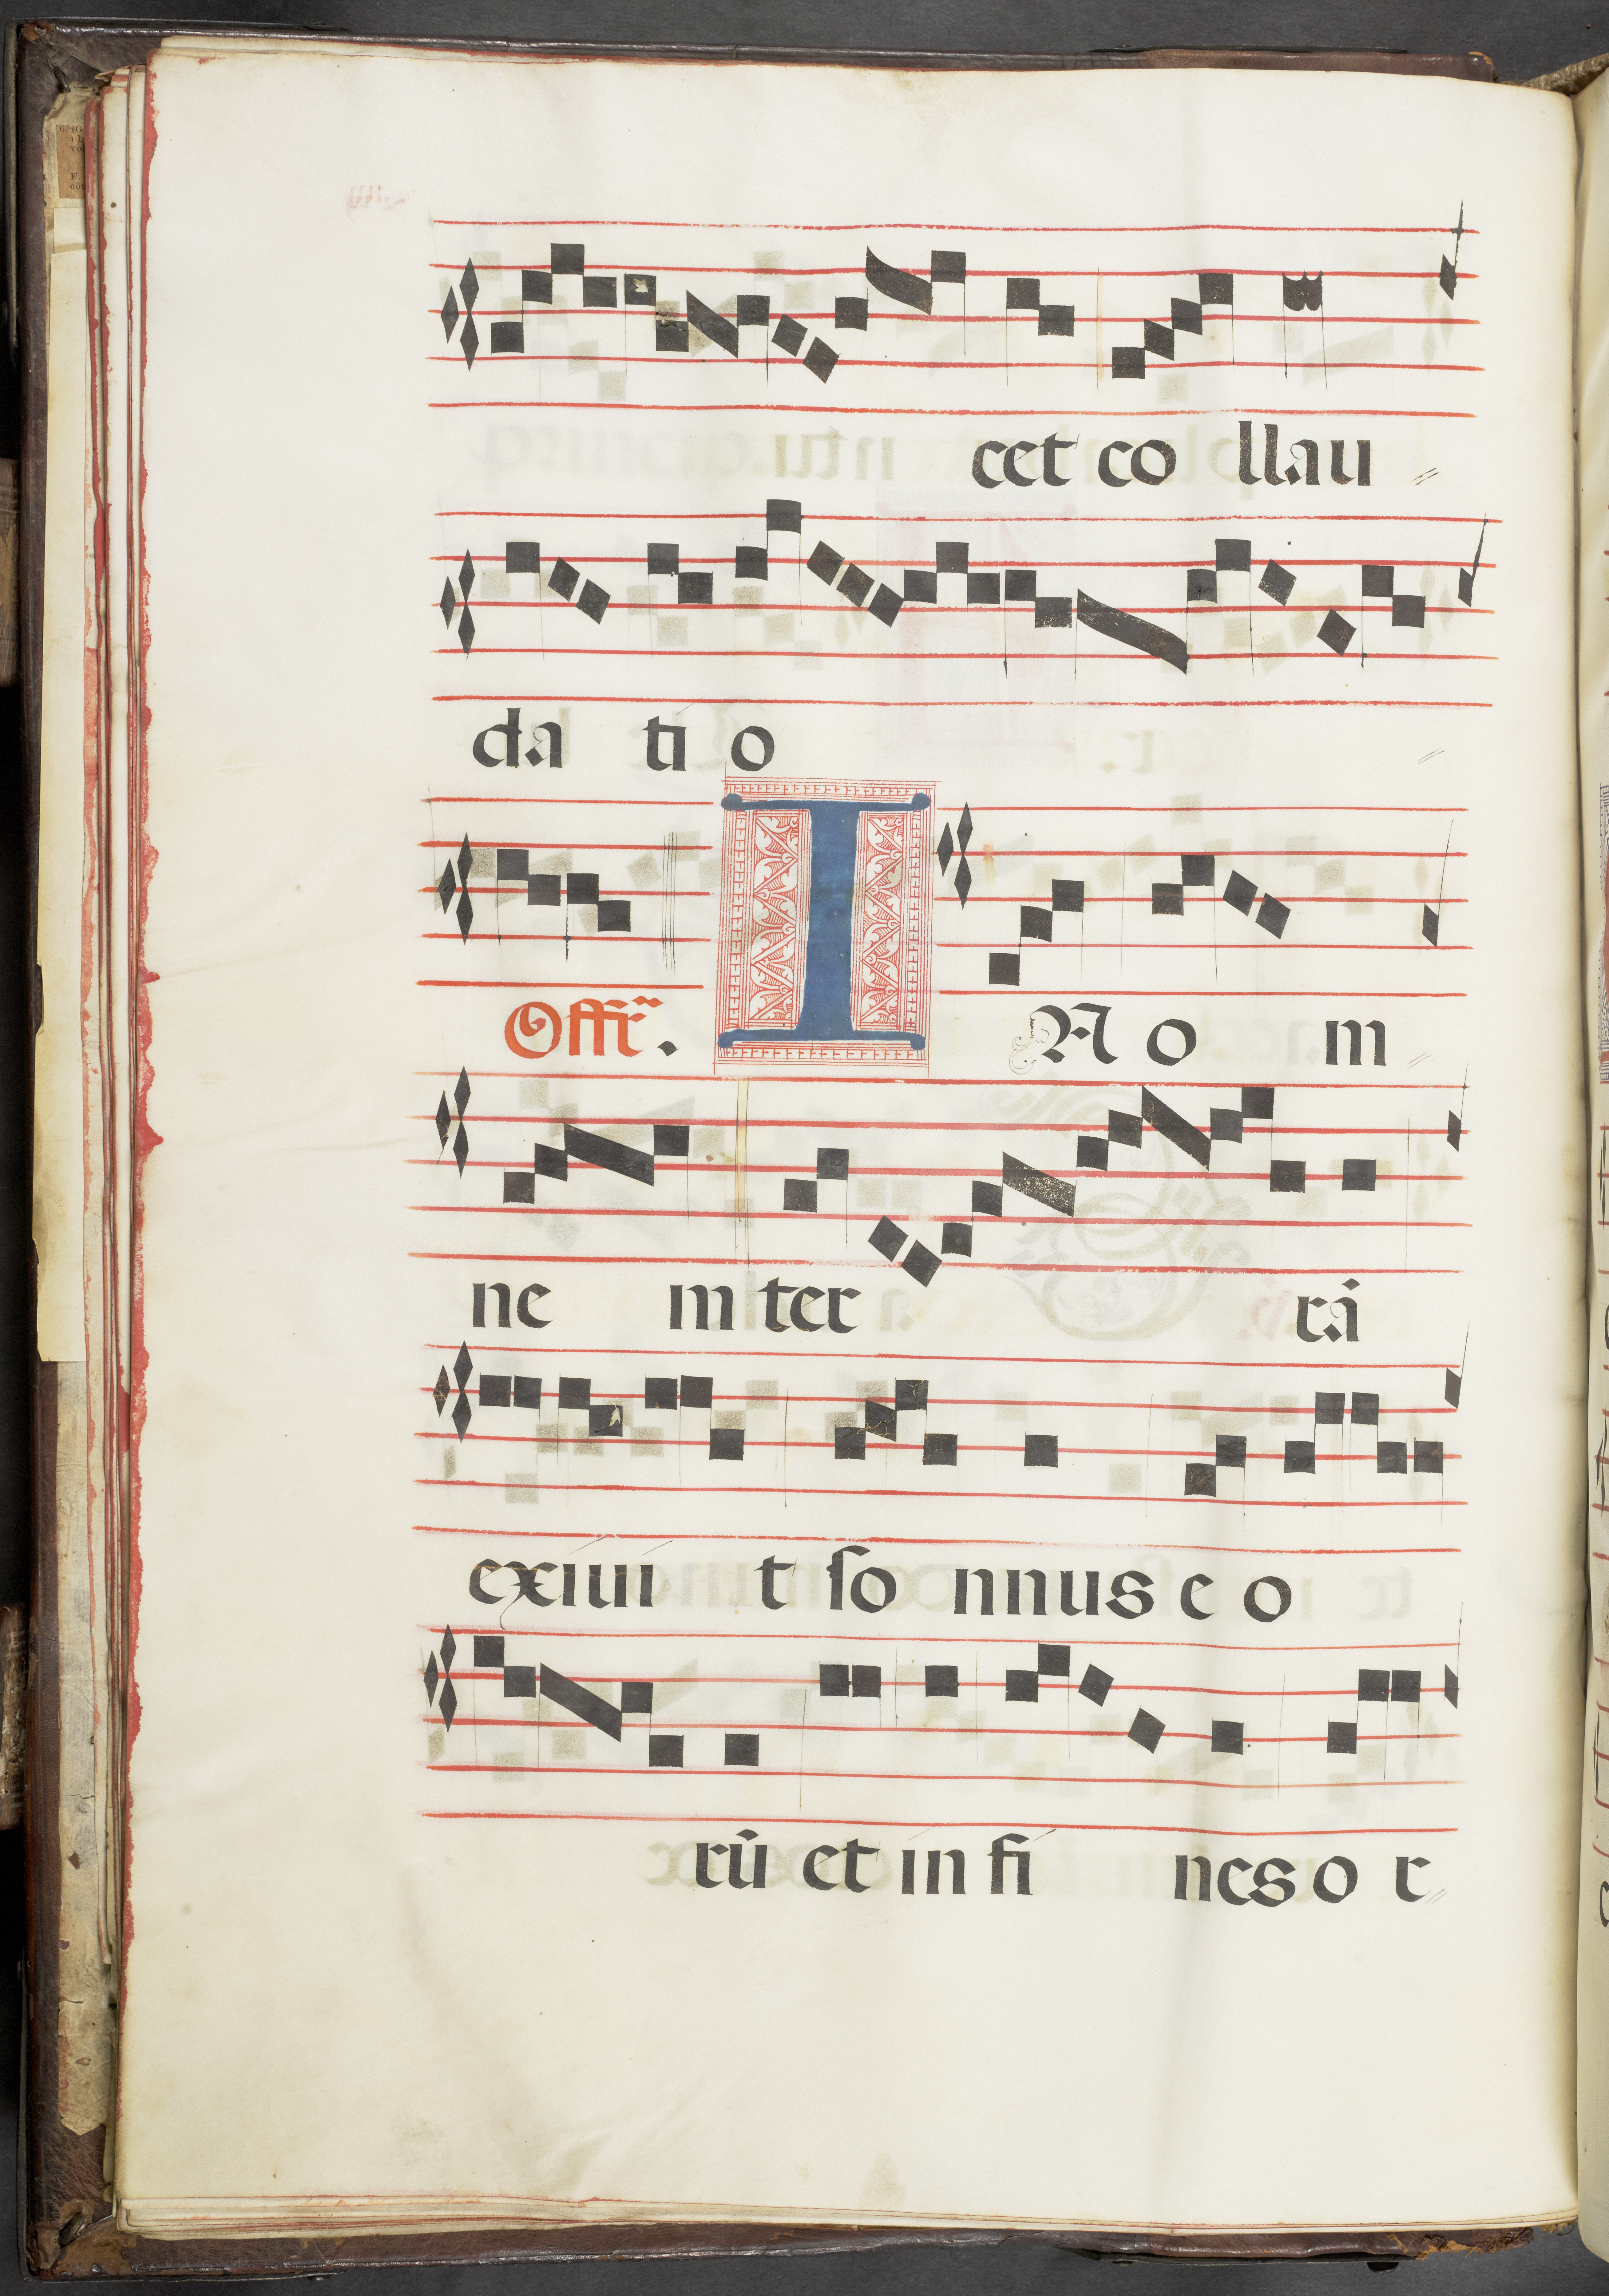 cet co llau
da ti o
Offr̃. I N o m
ne m ter rā
exiui t so nnus e o
rū et in fi nes o r